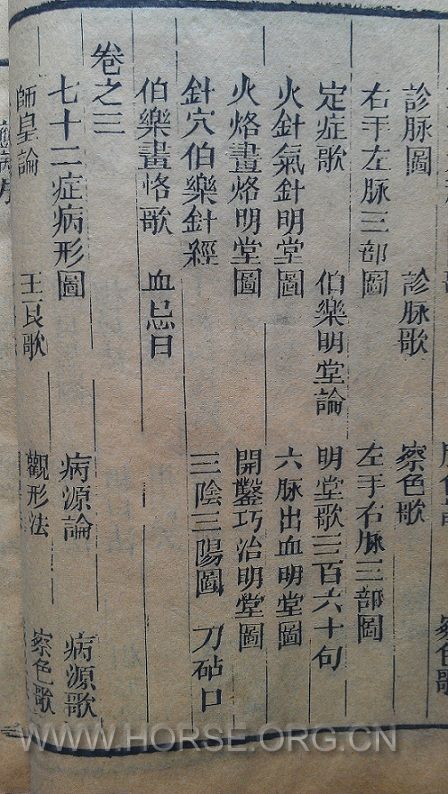 診脉圖 診脉歌 察色歌
右手左脉三部圖 左手右脉三部圖
定症歌 伯樂明堂論 明堂歌三百六十句
火針氣針明堂圖 六脉出血明堂圖
火烙畫烙明堂圖 開鑿巧治明堂圖
針穴伯樂針經 三陰三陽圖 刀砧口
伯樂畫恪歌 血忌日
卷之三
七十二症病形圖 病源論 病源歌
師皇論 王良歌 觀形法 察色歌
WWW.HORSE.ORG.CN